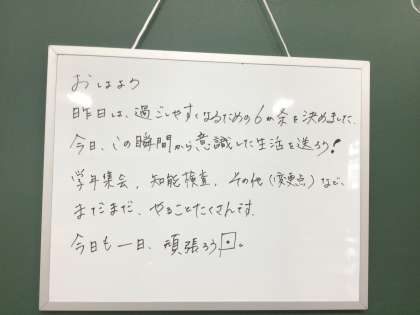 おはよう
昨日は、過ごしやすくなるための6ヵ条を決めました。
今日、この瞬間から意識した生活を送ろう!
学年集会、知能検査、その他(変更点)など、
まだまだ、やることたくさんです。
今日も一日、頑張ろう。